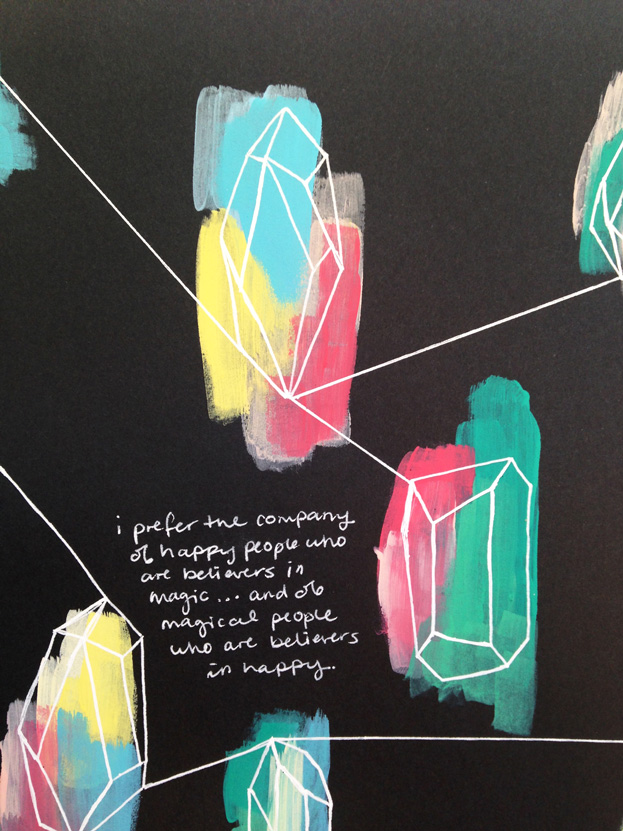 i prefer the company
of happy people who
are believers in
magic... and of
magical people
who are believers
in happy.